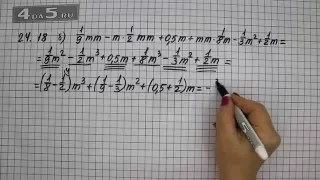 4DA5.RU
24.18 3) 1/9 mm - m · 1/2 mm + 0,5m + mm · 1/8 m - 1/3 m² + 1/2 m =
= 1/9 m² - 1/2 m³ + 0,5m + 1/8 m³ - 1/3 m² + 1/2 m =
= (1/8 - 1/2) m³ + (1/9 - 1/3) m² + (0,5 + 1/2) m = -